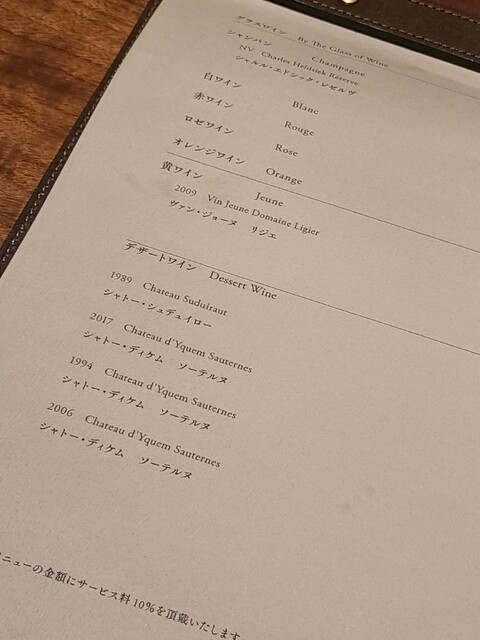 グラスワイン By The Glass of Wine
シャンパン Champagne
NV Charles Heidsieck Reserve
シャルル・エドシック・レゼルヴ
白ワイン Blanc
赤ワイン Rouge
ロゼワイン Rose
オレンジワイン Orange
黄ワイン Jeune
2009 Vin Jeune Domaine Ligier
ヴァン・ジョーヌ リジエ
デザートワイン Dessert Wine
1989 Chateau Suduiraut
シャトー・シュデュイロー
2017 Chateau d'Yquem Sauternes
シャトー・ディケム ソーテルヌ
1994 Chateau d'Yquem Sauternes
シャトー・ディケム ソーテルヌ
2006 Chateau d'Yquem Sauternes
シャトー・ディケム ソーテルヌ
ニューの金額にサービス料10%を頂戴いたします